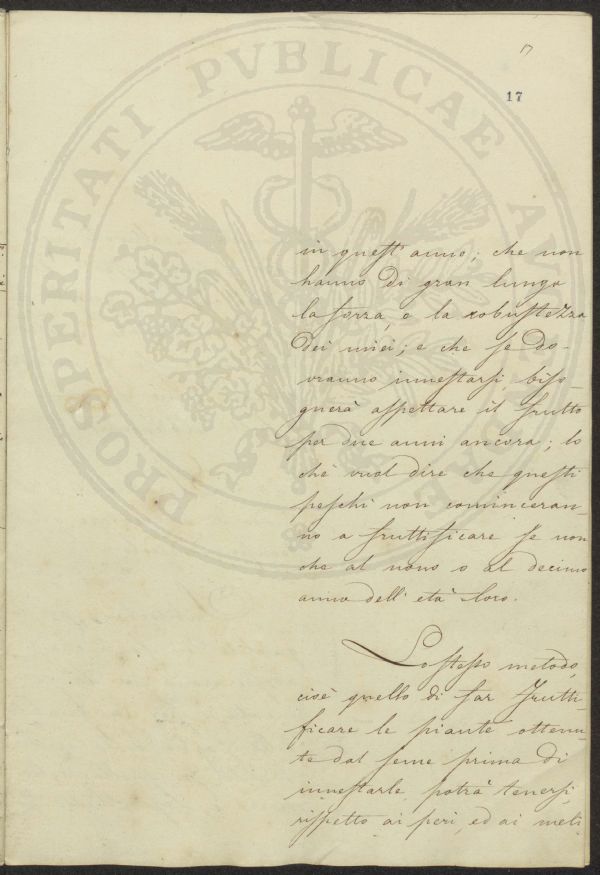 17
17
in quest' anno; che non
hanno di gran lunga
la forza, o la robustezza
dei miei; e che se do-
vranno innestarsi biso-
gnerà aspettare il frutto
per due anni ancora; lo
chè vuol dire che questi
peschi non comincieran-
no a fruttificare se non
che al nono o al decimo
anno dell' età loro.
Lo stesso metodo,
cioè quello di far frutti-
ficare le piante ottenu-
te dal seme prima di
innestarle potrà tenersi
rispetto ai peri, ed ai meli
PROSPERITATI PVBLICAE